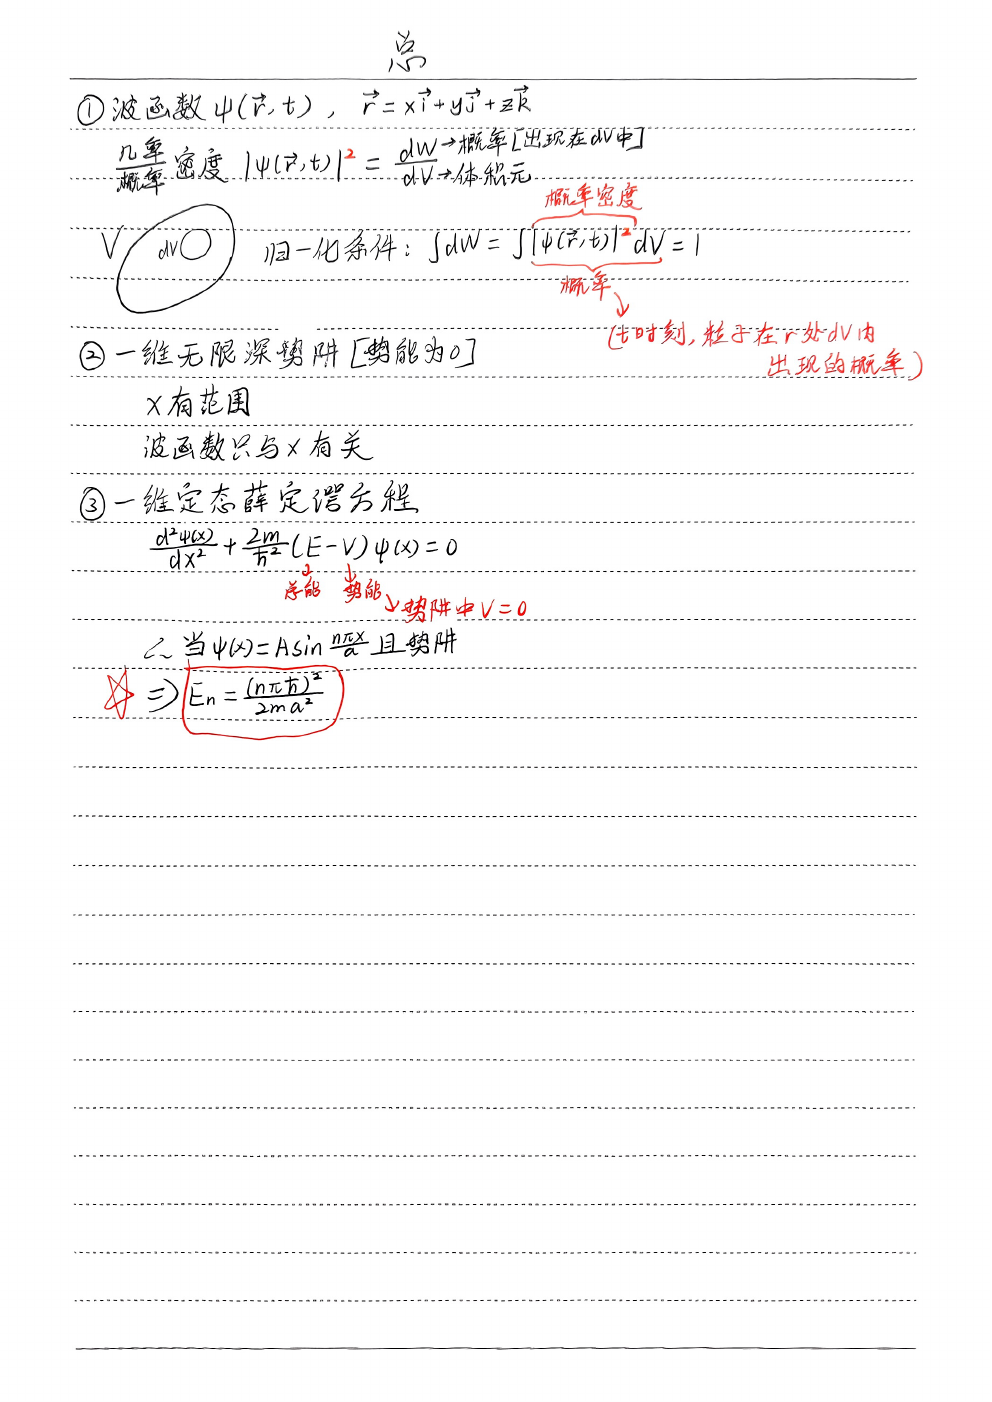 总
① 波函数 ψ(r⃗,t) , r⃗ = xi⃗+yj⃗+zk⃗
几率/概率 密度 |ψ(r⃗,t)|² = dW/dV →概率[出现在dV中] →体积元
概率密度
V dV 归一化条件: ∫dW = ∫|ψ(r⃗,t)|²dV = 1
概率
(t时刻,粒子在r处dV内
出现的概率)
② 一维无限深势阱[势能为0]
x有范围
波函数只与x有关
③ 一维定态薛定谔方程
d²ψ(x)/dx² + 2m/ħ² (E-V)ψ(x) = 0
总能 势能
势阱中V=0
∴ 当ψ(x)=Asin nπx/a 且势阱
☆ ⇒ Eₙ = (nπħ)²/2ma²